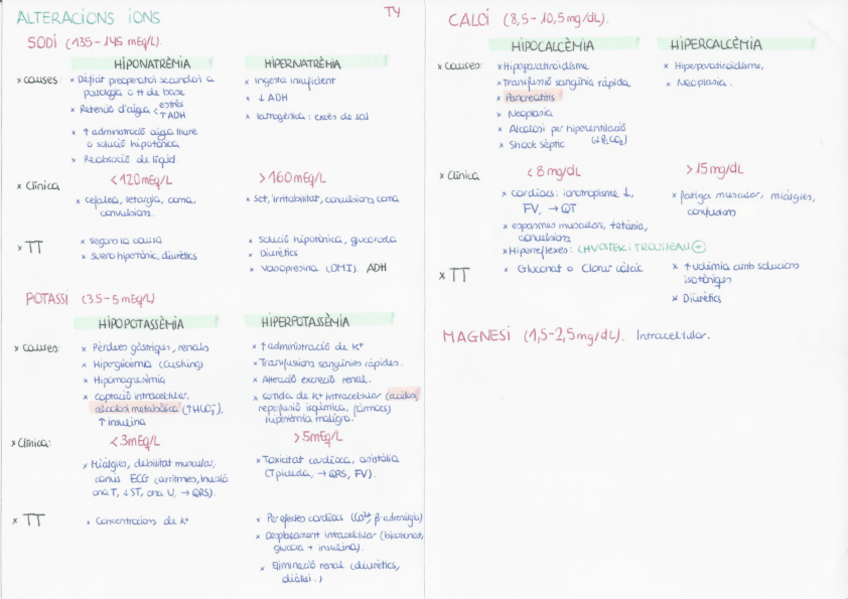 ALTERACIONS IONS
T4
SODI (135-145 mEq/L).
HIPONATRÈMIA
HIPERNATRÈMIA
x causes:
x Dèficit preoperatori secundari a
patologia o tt de base
x Retenció d'aigua < estrès
↑ADH
x ↑ administració aigua lliure
o solució hipotònica
x Reabsorció de líquid.
x Ingesta insuficient
x ↓ ADH
x Iatrogènica: excés de sal
x Clínica
<120mEq/L
>160mEq/L
x cefalea, letargia, coma,
convulsions.
x Set, irritabilitat, convulsions coma
x TT
x segons la causa
x Suero hipertònic, diurètics
x Solució hipotònica, glucosada
x Diürètics
x Vasopresina (DMI). ADH
POTASSI (3.5-5 mEq/L)
HIPOPOTASSÈMIA
HIPERPOTASSÈMIA
x causes:
x Pèrdues gàstriques, renals
x Hiperglucèmia (cushing)
x Hipomagnesèmia
x captació intracel·lular,
alcalosi metabòlica (↑HCO3-),
↑ insulina
x ↑ administració de K+
x Transfusions sanguínies ràpides.
x Alteració excreció renal.
x sortida de K+ intracel·lular (acidosi,
reperfusió isquèmica, fàrmacs)
hipertèrmia maligna.
x Clínica:
<3mEq/L
>5mEq/L
x Miàlgies, debilitat muscular,
canvis ECG (arritmies, inversió
ona T, ↓ST, ona U, → QRS).
x Toxicitat cardíaca, asistòlia
(T picuda, → QRS, FV).
x TT
x Concentracions de K+
x Per efectes cardíacs (Ca2+, β-adrenèrgic)
x Desplaçament intracel·lular (bicarbonat,
glucosa + insulina).
x Eliminació renal (diürètics,
diàlisi..)
CALCI (8,5-10,5mg/dL).
HIPOCALCÈMIA
HIPERCALCÈMIA
x causes:
x Hipoparatiroidisme
x Transfusió sangúnia ràpida
x Pancreatitis
x Neoplasia
x Alcalosi per hiperventilació
x Shock sèptic (↓PaCO2)
x Hiperparatiroidisme,
x Neoplasia.
x Clínica
<8mg/dL
>15mg/dL
x cardíacs: ionotropisme ↓,
FV, → QT
x espasmes musculars, tetània,
convulsions
x Hiperreflexes: CHVOSTEK i TROUSSEAU +
x fatiga muscular, miàlgies,
confusions
x TT
x Gluconat o Clorur càlcic
x ↑ volèmia amb solucions
isotòniques
x Diürètics
MAGNESI (1,5-2,5mg/dL). Intracel·lular.